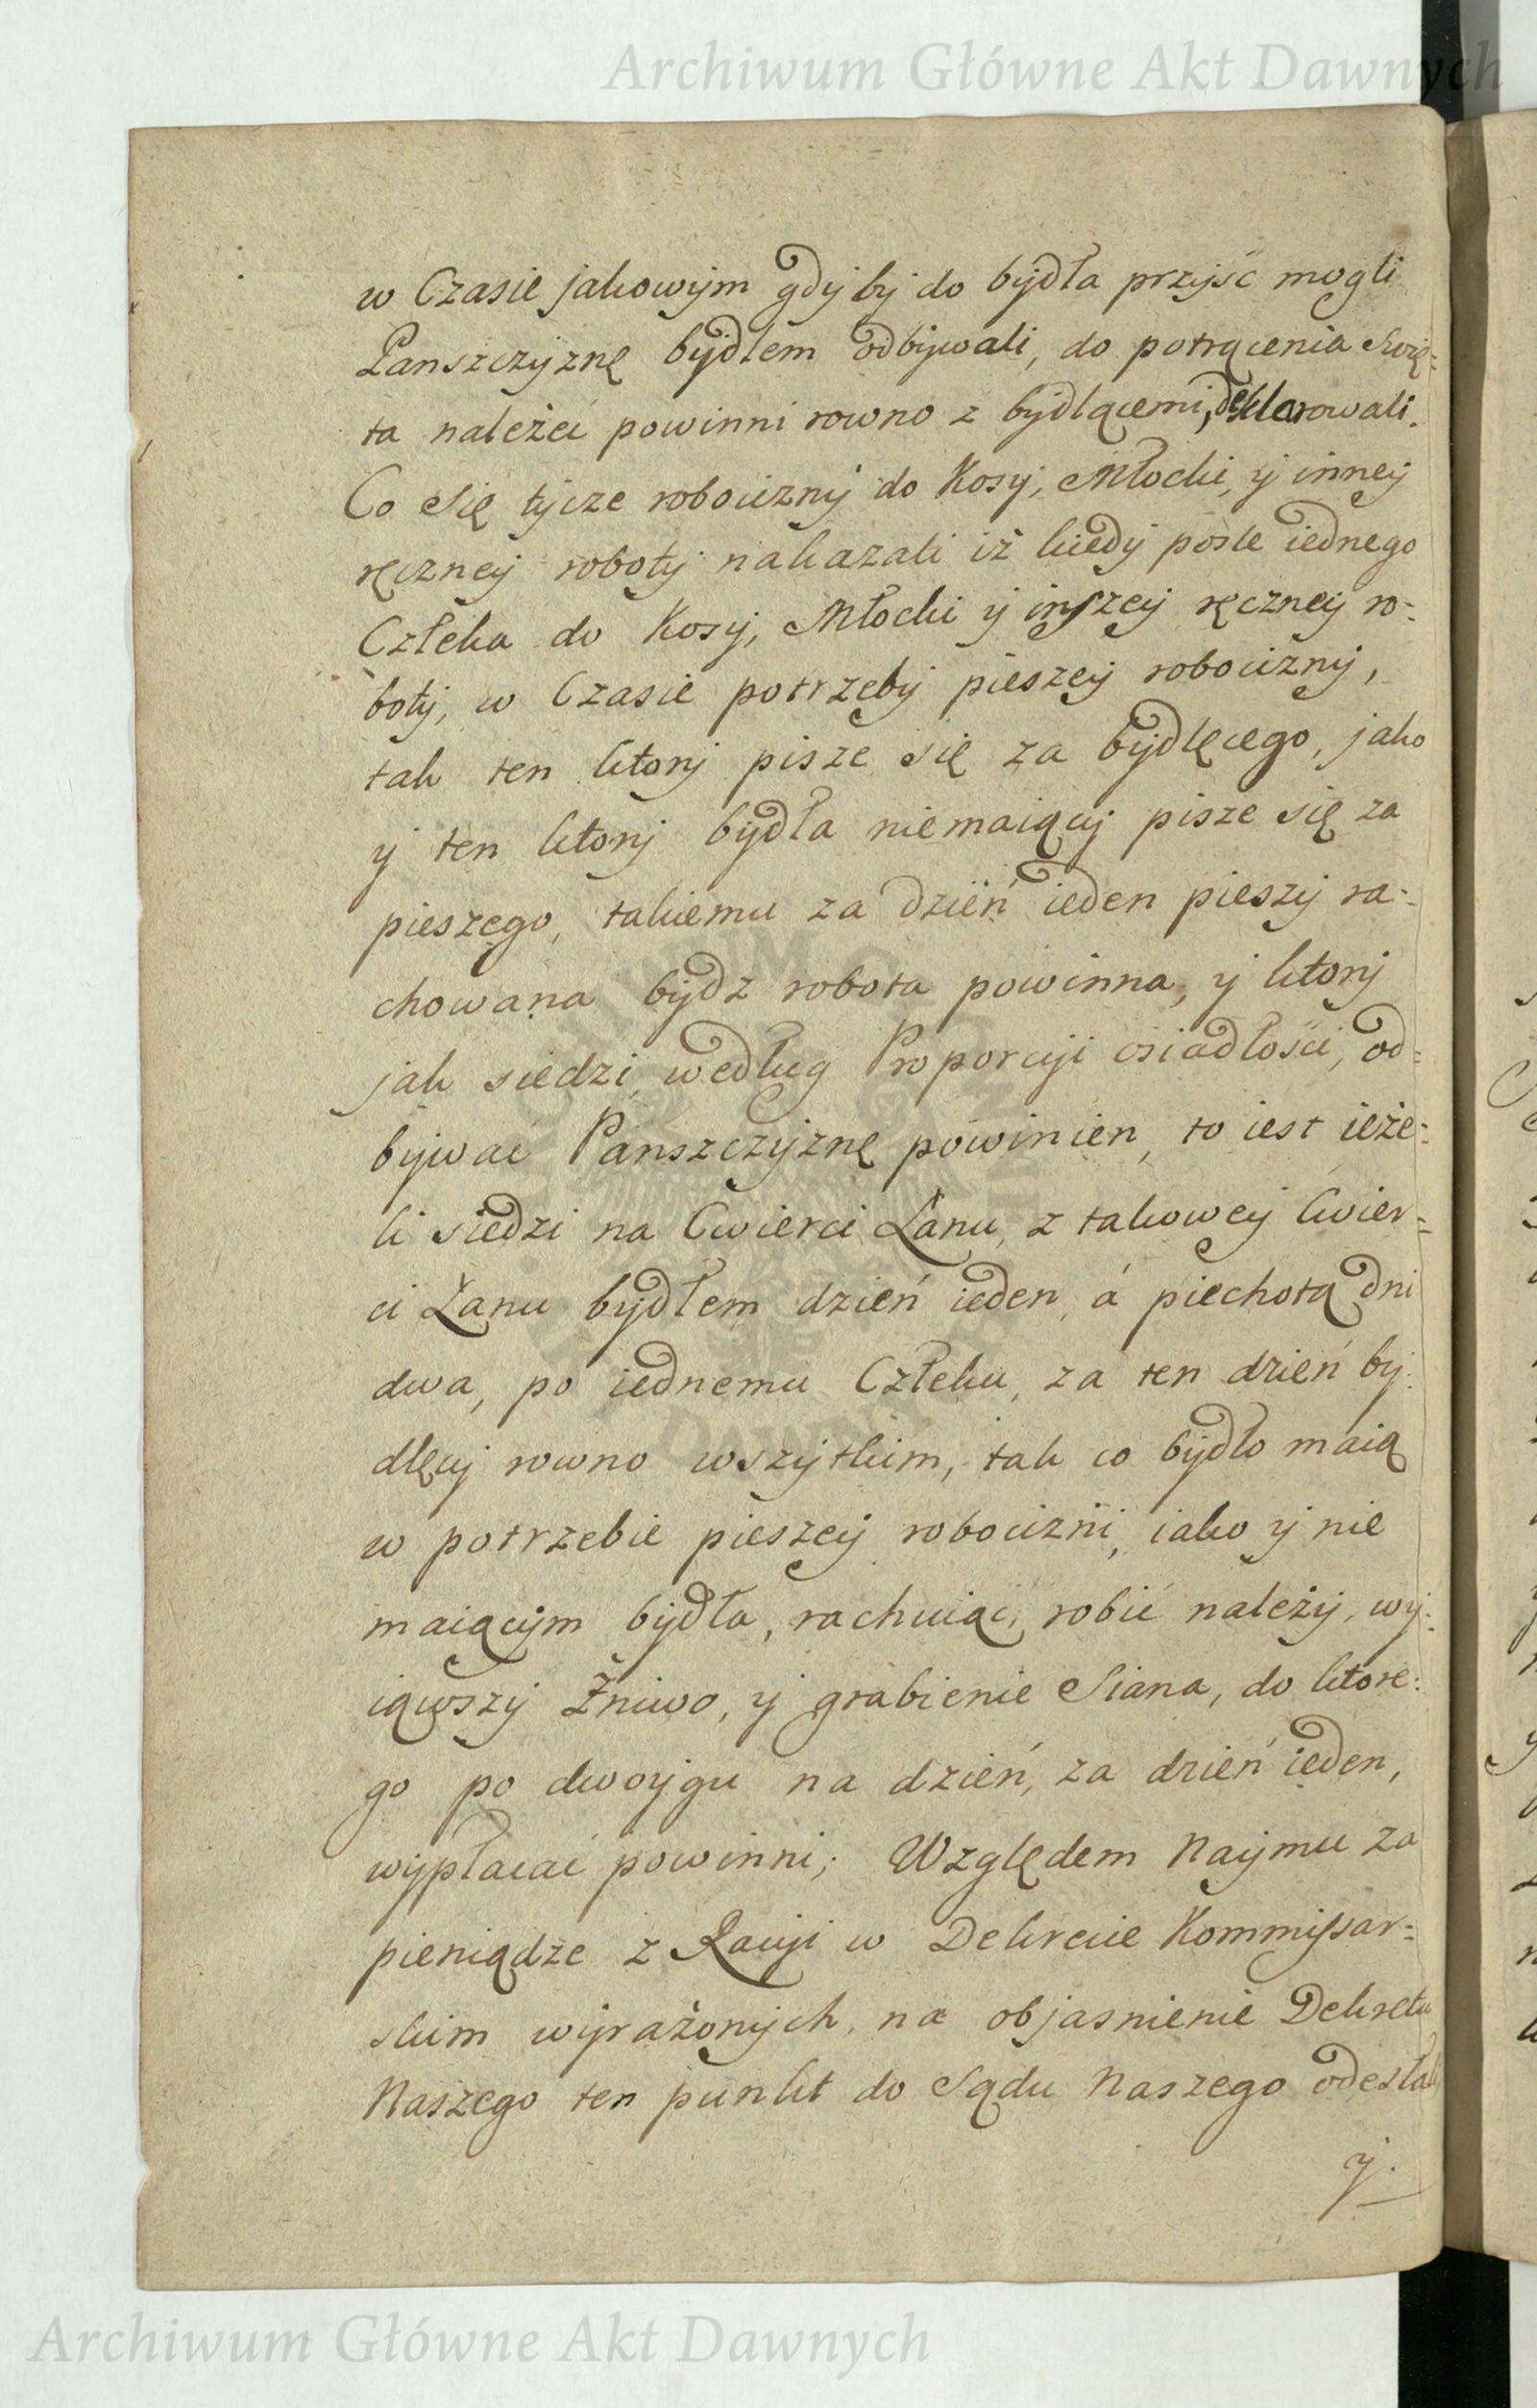 Archiwum Główne Akt Dawnych
w Czasie jakowym gdyby do bydła przyść mogli
Panszczyznę bydłem odbywali, do potrącenia Swię-
ta należeć powinni rowno z bydlącemi, deklarowali.
Co się tycze robocizny do Kosy, Młocki, y inney
ręczney roboty nakazali iż kiedy posle iednego
Człeka do Kosy, Młocki y inszey ręczney ro-
boty, w Czasie potrzeby pieszey robocizny,
tak ten ktory pisze się za bydlęcego, jako
y ten ktory bydła niemaiący pisze się za
pieszego, takiemu za dzień ieden pieszy ra-
chowana bydz robota powinna, y ktory
jak siedzi, według Proporcyi osiadłości, od-
bywać Panszczyznę powinien, to iest ieże-
li siedzi na Cwierci Łanu, z takowey Cwier-
ci Łanu bydłem dzień ieden, á piechotą dni
dwa, po iednemu Człeku, za ten dzień by-
dlęcy rowno wszytkim, tak co bydło maią
w potrzebie pieszey robocizni, iako y nie
maiącym bydła, rachuiąc, robić należy, wy-
iąwszy Żniwo, y grabienie Siana, do ktore-
go po dwoygu na dzień, za dzień ieden,
wypłacać powinni; Względem Naymu za
pieniądze z Racyi w Dekrecie Kommissar-
skim wyrażonych, na objasnienie Dekretu
Naszego ten punkt do Sądu Naszego odesłali
y.
Archiwum Główne Akt Dawnych